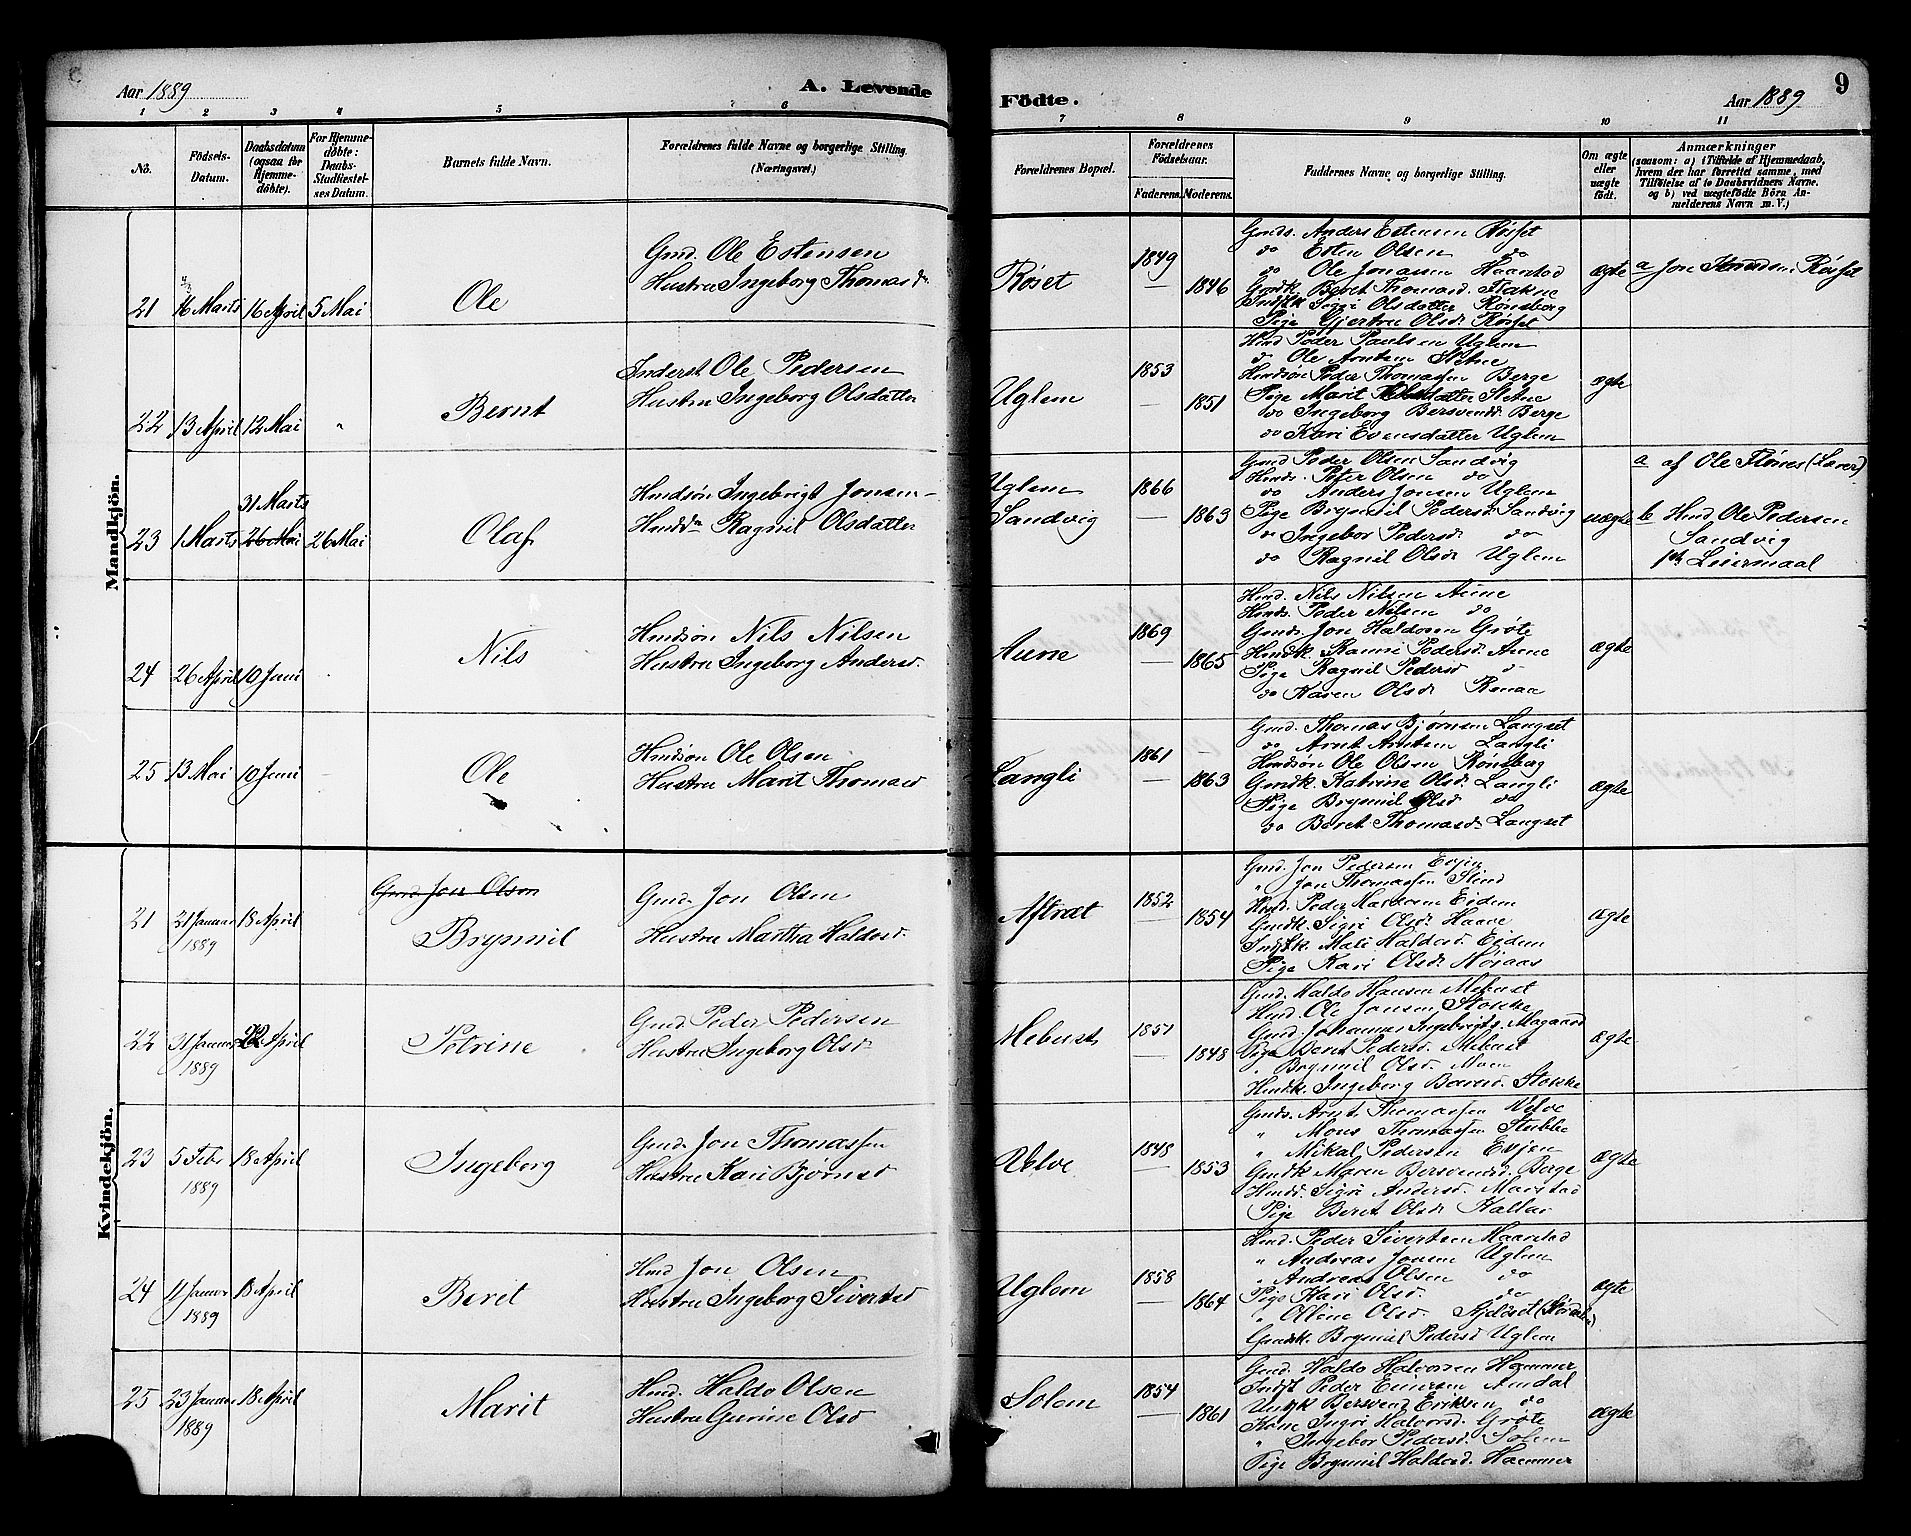 Aar 1889
A. Levende
Födte.
Aar 1889
9
1 2 3 4 5 6 7 8 9 10 11
No.
Födsels-Datum.
Daabsdatum (ogsaa for Hjemmedöbte).
For Hjemmedöbte: Daabs-Stadfæstelses Datum.
Barnets fulde Navn.
Forældrenes fulde Navne og borgerlige Stilling. (Næringsvei.)
Forældrenes Bopæl.
Forældrenes Födselsaar.
Faderens. Moderens.
Faddernes Navne og borgerlige Stilling.
Om ægte eller uægte födt.
Anmærkninger
(saasom: a) i Tilfælde af Hjemmedaab, hvem der har forrettet samme, med Tilföielse af to Daabsvidners Navne. og b) ved uægtefödte Börn Anmelderens Navn m. V.)
Mandkjön.
21 16 Marts 16 April 5 Mai Ole
Gmd. Ole Estensen
Hustru Ingeborg Thomasdr
Røset 1849 — 1846
Gmds. Anders Estensen Røsset
do Esten Olsen do
do Ole Jonassen Haarstad
Gmdk. Beret Thomasd. Flakne
Indstk Siggri Olsdatter Rønsberg
Pige Gjertru Olsd. Røsset
ægte
a Jon Røsset
22 13 April 12 Mai " Bernt
Inderst Ole Pedersen
Hustru Ingeborg Olsdatter
Uglem 1853 — 1851
Hmd Peder Paulsen Uglem
do Ole Arntsen Stetne
Hmdsøn Peder Thomassen Berge
Pige Marit Olsdatter Stetne
do Ingeborg Bersvendsd. Berge
do Kari Evensdatter Uglem
ægte
23 1 Marts 31 Marts 26 Mai 26 Mai Olaf
Hmdsøn Ingebrigt Jonsen
Hmddr Ragnil Olsdatter
Uglem
Sandvig 1866 — 1863
Gmd Peder Olsen Sandvig
Hmds. Peter Olsen do
do Anders Jonsen Uglem
Pige Brynnil Pedersd Sandvig
do Ingebor Pedersd do
do Ragnil Olsd. Uglem
uægte
a af Ole Flønes (Lærer)
b Hmd Ole Pedersen
Sandvig
1ste Leiermaal
24 26 April 10 Juni Nils
Hmdsøn Nils Nilsen
Hustru Ingeborg Andersd.
Aune 1869 — 1865
Hmd. Nils Nilsen Aune
Hmds. Peder Nilsen do
Gmds. Jon Haldosen Grøte
Hmdk. Ranni Pedersd. Aune
Pige Ragnil Pedersd do
do Karen Olsd. Renaa
ægte
25 13 Mai 10 Juni Ole
Hmdsøn Ole Olsen
Hustru Marit Thomasd
Langli 1861 — 1863
Gmd. Thomas Bjørnsen Langset
do Arnt Arntsen Langli
Hmdsøn Ole Olsen Rønsberg
Gmdk. Katrine Olsd. Langli
Pige Brynnil Olsd do
do Beret Thomasd. Langset
ægte
Kvindekjön.
21 21 Januar 1889 18 April
Gmd. Jon Olsen
Brynnil
Gmd. Jon Olsen
Hustru Martha Haldosd.
Aftræt 1852 — 1854
Gmd. Jon Pedersen Evjen
" Jon Thomassen Slind
Hmd. Peder Eidem
Gmdk. Sigri Olsd. Haave
Indstk. Mali Haldosd. Eidem
Pige Kari Olsd. Moraas
ægte
22 31 Januar 1889 22 April Petrine
Gmd. Peder Pedersen
Hustru Ingeborg Olsd
Mebust 1851 — 1848
Gmd. Haldo Hansen Mebust
Hmd. Ole Jonsen Stokke
Gmd. Johannes Ingebrigts. Mogaard
Pige Beret Pedersd. Mebust
" Brynnil Olsd. Moen
Hmdk. Ingeborg Baresd. Stokke
ægte
23 5 Febr 1889 18 April Ingeborg
Gmd. Jon Thomassen
Hustru Kari Bjørnsd
Velve 1848 — 1853
Gmds. Arnt Thomassen Velve
" Mons Thomassen Stubbe
" Mikal Pedersen Evjen
Gmdk. Maren Bersvendsd. Berge
Hmdd. Sigri Andersd. Marstad
Pige Beret Olsd. Kallar
ægte
24 11 Januar 1889 18 April Beret
Hmd Jon Olsen
Hustru Ingeborg Sivertsd
Uglem 1858 — 1864
Hmd. Peder Sivertsen Haarstad
" Andreas Jonsen Uglem
" Andreas Olsen do
Pige Kari Olsd. do
" Oline Olsd.
Gmdk. Brynnil Pedersd Uglem
ægte
25 23 Januar 1889 18 April Marit
Hmd. Haldo Olsen
Hustru Gurine Olsd
Solem 1854 — 1861
Gmd. Haldo Halvorsen Hammer
Indst Peder Einersen Amdal
Ungk Bersvend Eriksen do
Kone Ingri Halvorsd. Grøte
" Ingebor Pedersd. Solem
Pige Brynnil Haldosd. Hammer
ægte